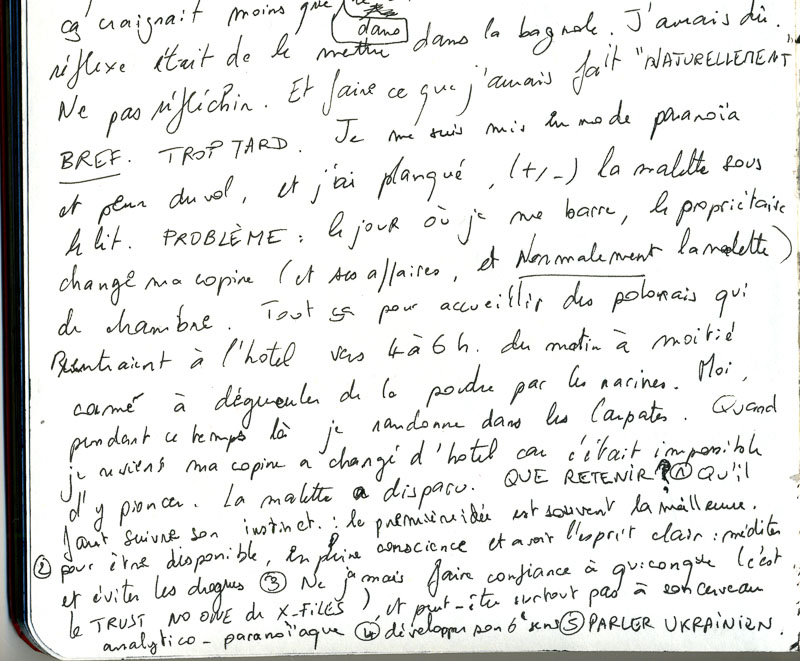 ça craignait moins que
dans
dans la bagnole. J'aurais dû.
réflexe était de le mettre
Ne pas réfléchir. Et faire ce que j'aurais fait "NATURELLEMENT"
BREF. TROP TARD. Je me suis mis en mode paranoïa
et peur du vol, et j'ai planqué, (+/-) la malette sous
le lit. PROBLÈME : le jour où je me barre, le propriétaire
change ma copine (et ses affaires, et Normalement la malette)
de chambre. Tout ça pour accueillir des polonais qui
Rentraient à l'hotel vers 4 à 6 h. du matin à moitié
camé à dégueuler de la poudre par les narines. Moi,
pendant ce temps là je randonne dans les Carpates. Quand
je reviens ma copine a changé d'hotel car c'était impossible
d'y pioncer. La malette a disparu. QUE RETENIR ? ① QU'il
faut suivre son instinct. : la première idée est souvent la meilleure.
② pour être disponible, en pleine conscience et avoir l'esprit clair : méditer
et éviter les drogues ③ Ne jamais faire confiance à quiconque (c'est
le TRUST NO ONE de X-FILES), et peut-être surtout pas à son cerveau
analytico-paranoïaque ④ développer son 6e sens ⑤ PARLER UKRAINIEN.